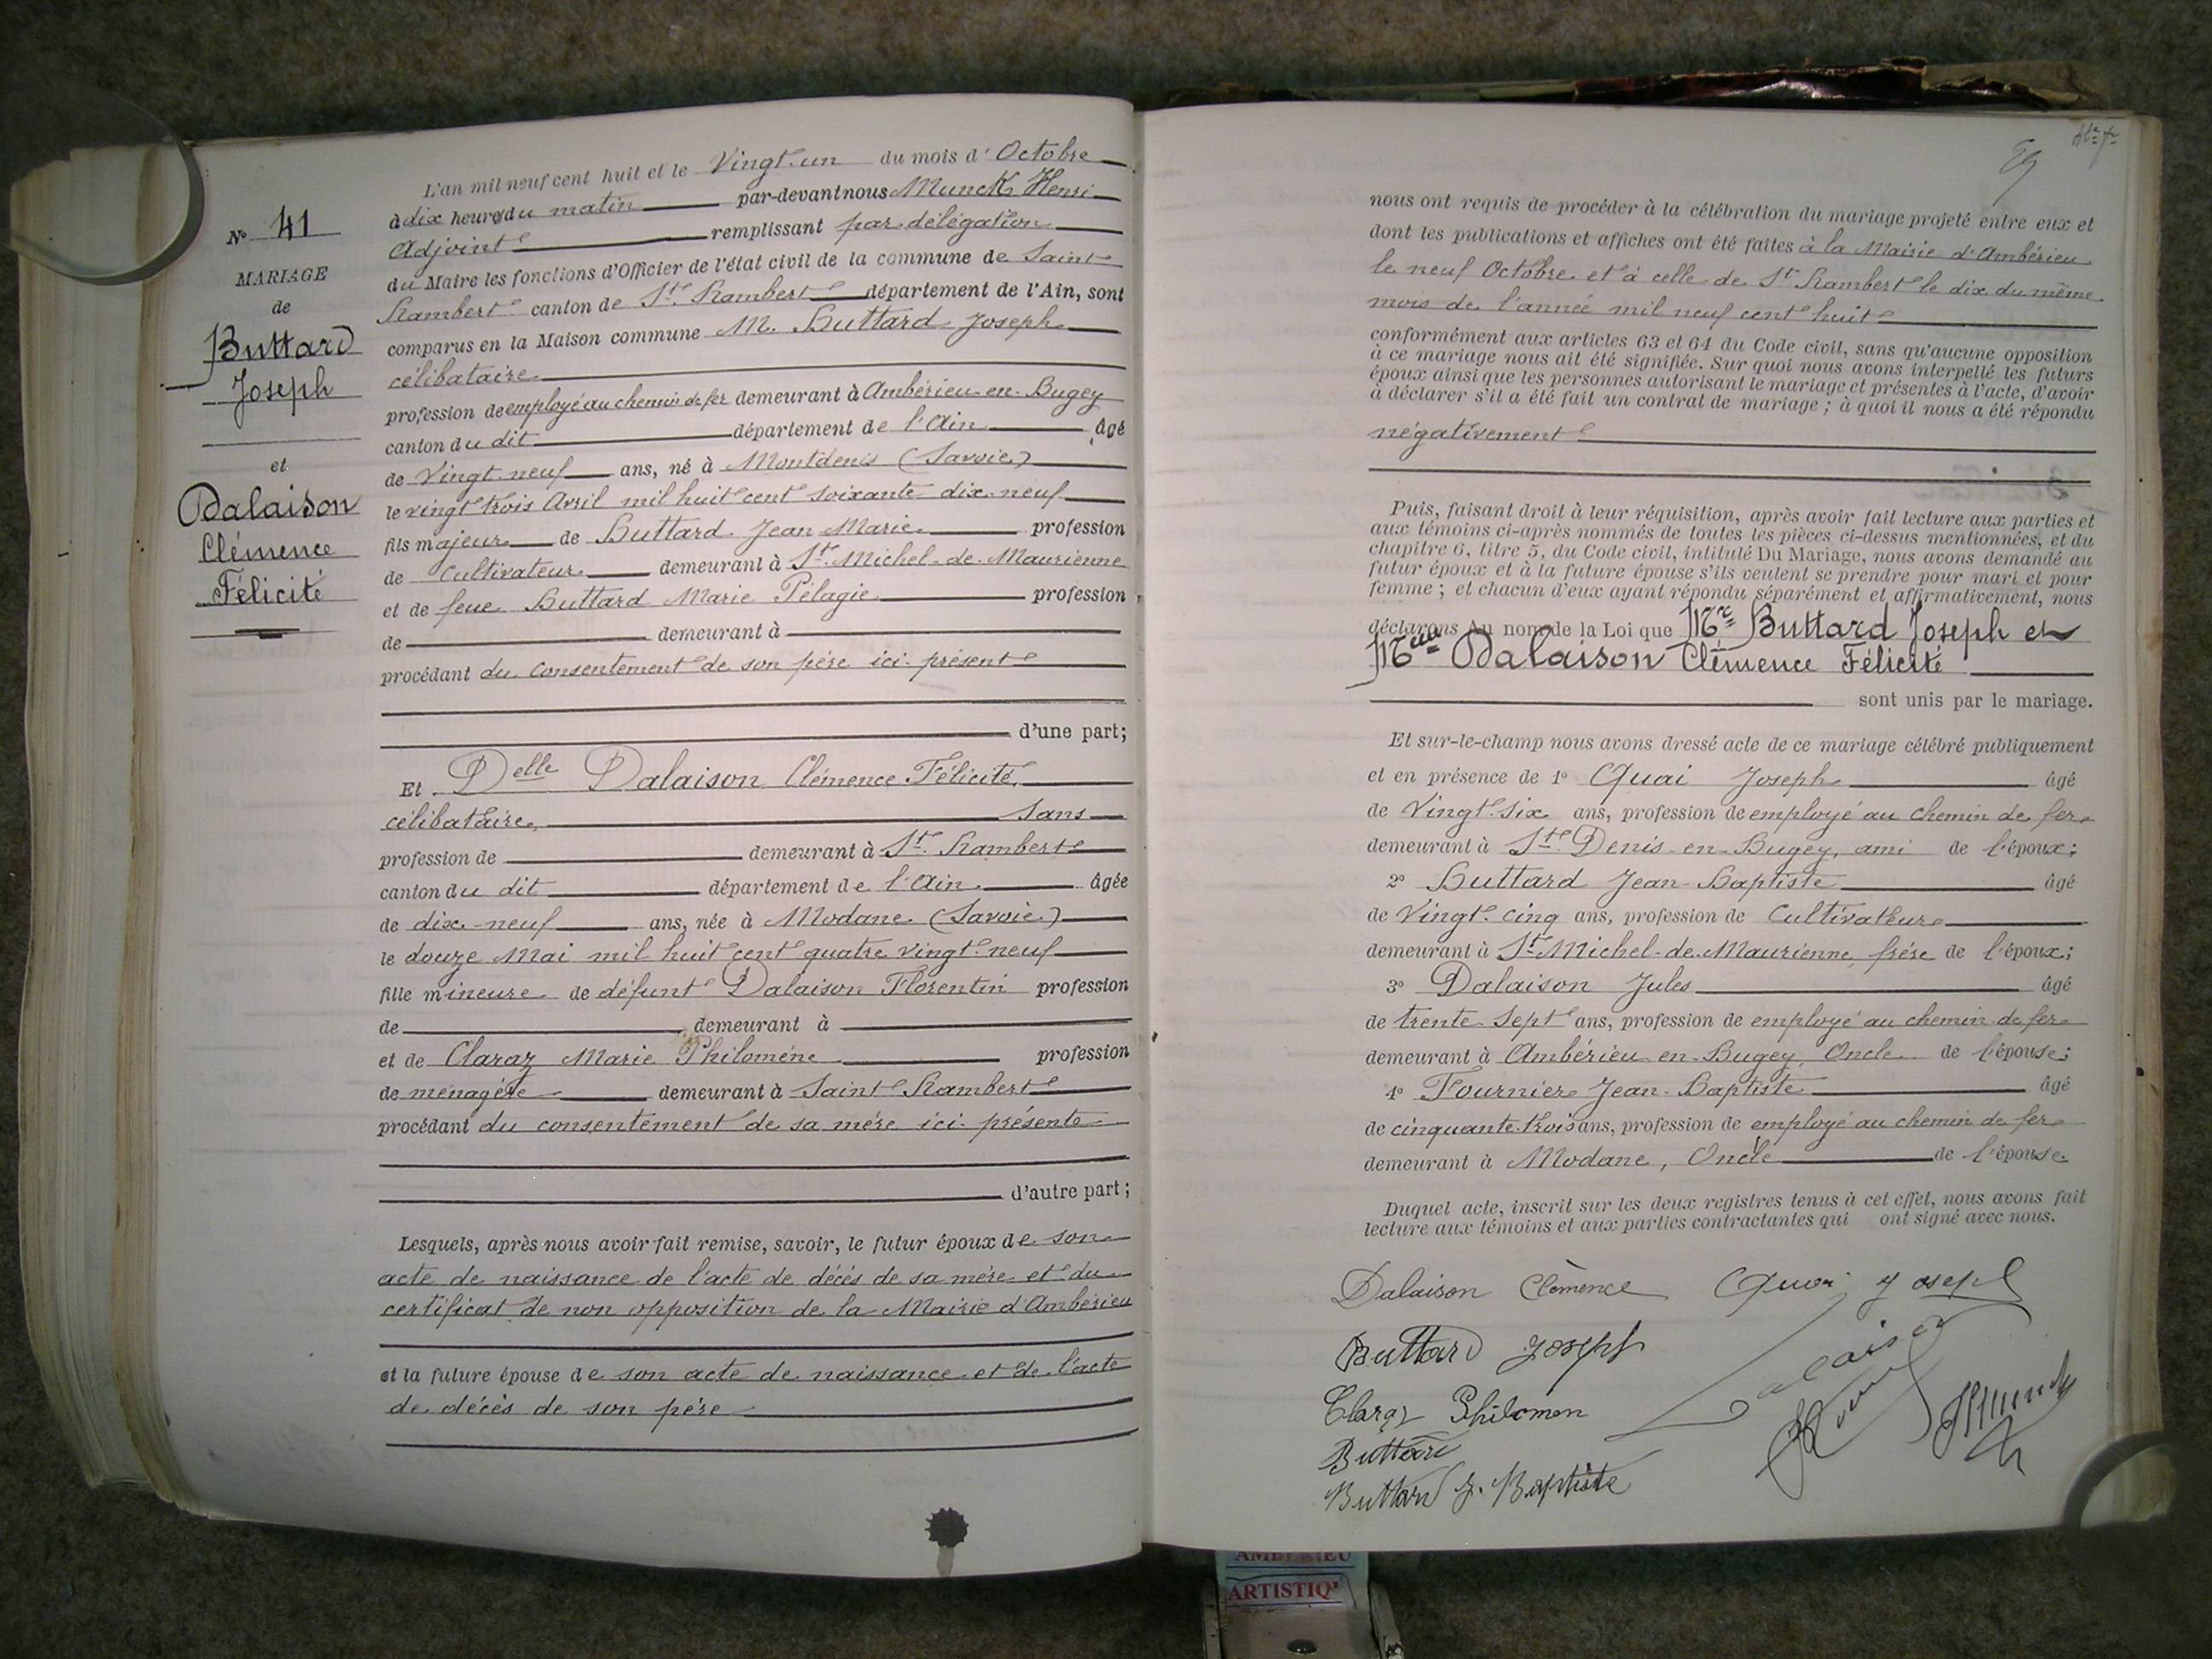 N° 41
MARIAGE
de
Buttard
Joseph
et
Dalaison
Clémence
Félicité
L'an mil neuf cent huit et le Vingt-un du mois d'Octobre
à dix heures du matin par-devant nous Munck Henri
Adjoint remplissant par délégation
du Maire les fonctions d'Officier de l'état civil de la commune de Saint
Rambert canton de St Rambert département de l'Ain, sont
comparus en la Maison commune M. Buttard Joseph
célibataire
profession de employé au chemin de fer demeurant à Ambérieu-en-Bugey
canton du dit département de l'Ain âgé
de Vingt-neuf ans, né à Montdenis (Savoie)
le vingt trois Avril mil huit cent soixante dix-neuf
fils majeur de Buttard Jean Marie profession
de Cultivateur demeurant à St Michel-de-Maurienne
et de feue Buttard Marie Pélagie profession
de demeurant à
procédant du consentement de son père ici présent
d'une part;
Et Delle Dalaison Clémence Félicité
célibataire, Sans
profession de demeurant à St Rambert
canton du dit département de l'Ain âgée
de dix-neuf ans, née à Modane (Savoie)
le douze Mai mil huit cent quatre vingt-neuf
fille mineure de défunt Dalaison Florentin profession
de demeurant à
et de Claraz Marie Philomène profession
de ménagère demeurant à Saint Rambert
procédant du consentement de sa mère ici présente
d'autre part;
Lesquels, après nous avoir fait remise, savoir, le futur époux de son
acte de naissance de l'acte de décès de sa mère et du
certificat de non opposition de la Mairie d'Ambérieu
et la future épouse de son acte de naissance et de l'acte
de décès de son père
nous ont requis de procéder à la célébration du mariage projeté entre eux et
dont les publications et affiches ont été faites à la Mairie d'Ambérieu
le neuf Octobre et à celle de St Rambert le dix du même
mois de l'année mil neuf cent huit
conformément aux articles 63 et 64 du Code civil, sans qu'aucune opposition
à ce mariage nous ait été signifiée. Sur quoi nous avons interpellé les futurs
époux ainsi que les personnes autorisant le mariage et présentes à l'acte, d'avoir
à déclarer s'il a été fait un contrat de mariage ; à quoi il nous a été répondu
négativement
Puis, faisant droit à leur réquisition, après avoir fait lecture aux parties et
aux témoins ci-après nommés de toutes les pièces ci-dessus mentionnées, et du
chapitre 6, titre 5, du Code civil, intitulé Du Mariage, nous avons demandé au
futur époux et à la future épouse s'ils veulent se prendre pour mari et pour
femme ; et chacun d'eux ayant répondu séparément et affirmativement, nous
déclarons Au nom de la Loi que Mr Buttard Joseph et
Melle Dalaison Clémence Félicité
sont unis par le mariage.
Et sur-le-champ nous avons dressé acte de ce mariage célébré publiquement
et en présence de 1° Quai Joseph âgé
de Vingt-six ans, profession de employé au chemin de fer
demeurant à St Denis-en-Bugey, ami de l'époux;
2° Buttard Jean-Baptiste âgé
de Vingt-cinq ans, profession de Cultivateur
demeurant à St Michel-de-Maurienne, frère de l'époux;
3° Dalaison Jules âgé
de trente sept ans, profession de employé au chemin de fer
demeurant à Ambérieu-en-Bugey, Oncle de l'épouse;
4° Fournier Jean-Baptiste âgé
de cinquante-trois ans, profession de employé au chemin de fer
demeurant à Modane, Oncle de l'épouse.
Duquel acte, inscrit sur les deux registres tenus à cet effet, nous avons fait
lecture aux témoins et aux parties contractantes qui ont signé avec nous.
Dalaison Clémence Quai Joseph
Buttard Joseph
Dalaison
Claraz Philomen
HMunck
Buttard
Buttard J. Baptiste
AMBERIEU
ARTISTIQ